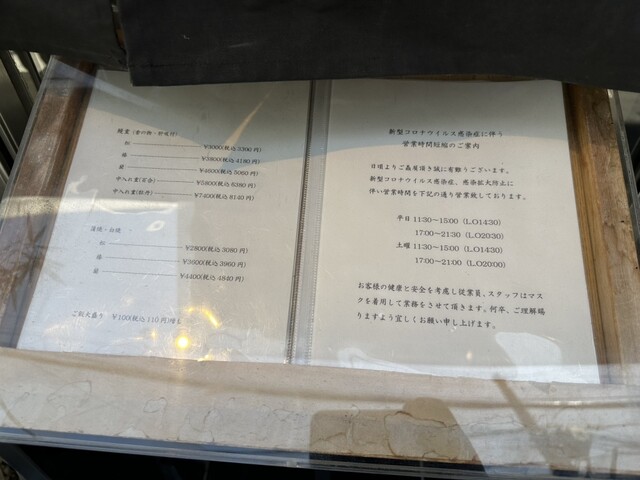 鰻重（香の物・肝吸付）
¥3000(税込 3300 円)
¥3800(税込 4180 円)
¥4600(税込 5060 円)
中入れ重(百合) ¥5800(税込 6380 円)
中入れ重(牡丹) ¥7400(税込 8140 円)
蒲焼・白焼
¥2800(税込 3080 円)
¥3600(税込 3960 円)
¥4400(税込 4840 円)
ご飯大盛り ¥100(税込 110 円)増し
新型コロナウイルス感染症に伴う
営業時間短縮のご案内
日頃よりご贔屓頂き誠に有難うございます。
新型コロナウイルス感染症、感染拡大防止に
伴い営業時間を下記の通り営業致しております。
平日 11:30～15:00（L.O14:30）
17:00～21:30（L.O20:30）
土曜 11:30～15:00（L.O14:30）
17:00～21:00（L.O20:00）
お客様の健康と安全を考慮し従業員、スタッフはマス
クを着用して業務をさせて頂きます。何卒、ご理解賜
りますよう宜しくお願い申し上げます。